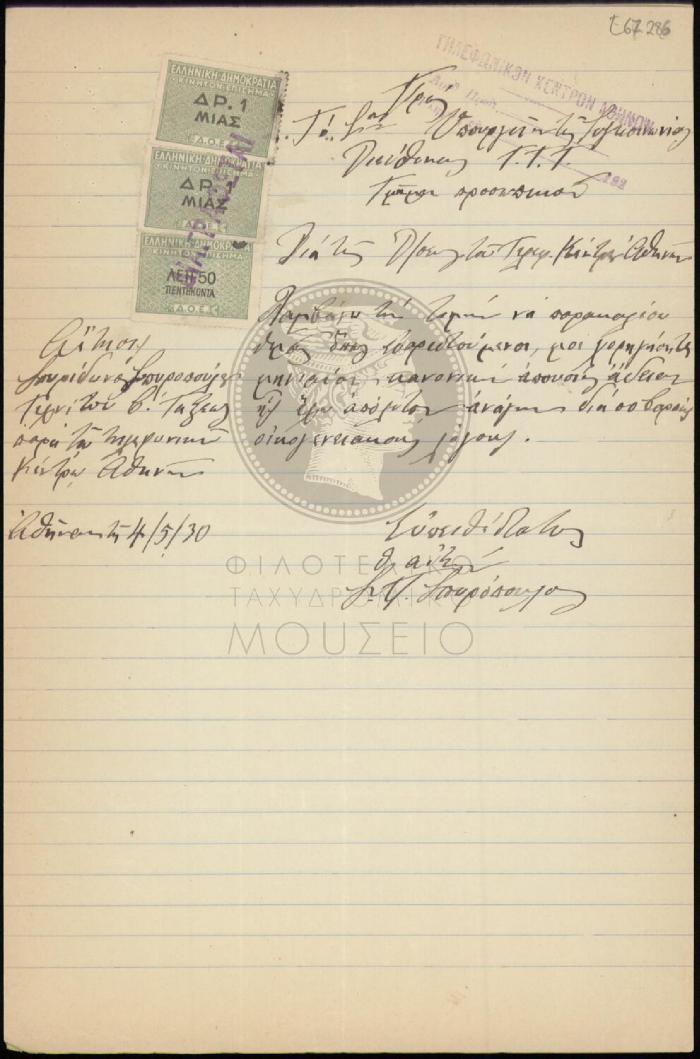 Ε67 286
ΤΗΛΕΦΩΝΙΚΟΝ ΚΕΝΤΡΟΝ ΑΘΗΝΩΝ
ΕΛΛΗΝΙΚΗ ΔΗΜΟΚΡΑΤΙΑ
ΚΙΝΗΤΟΝ ΕΠΙΣΗΜΑ
ΔΡ. 1
ΜΙΑΣ
Δ.Ο.Ε.
ΕΛΛΗΝΙΚΗ ΔΗΜΟΚΡΑΤΙΑ
ΚΙΝΗΤΟΝ ΕΠΙΣΗΜΑ
ΔΡ. 1
ΜΙΑΣ
Δ.Ο.Ε.
ΕΛΛΗΝΙΚΗ ΔΗΜΟΚΡΑΤΙΑ
ΚΙΝΗΤΟΝ ΕΠΙΣΗΜΑ
ΛΕΠ 50
ΠΕΝΤΗΚΟΝΤΑ
Δ.Ο.Ε.
Προς
Τό Υπουργείον της Συγκοινωνίας
Διεύθυνσις Τ.Τ.Τ
Τμήμα προσωπικού
Διά της Τηλεφ. Κέντρου Αθηνών
Λαμβάνω την τιμήν να παρακαλέσω
όπως ευαρεστούμενοι, μοι χορηγήσητε
κανονικήν άδειαν
ής έχω απόλυτον ανάγκην διά σοβαρούς
οικογενειακούς λόγους.
Αίτησις
Σπυρίδωνος Σπυροπούλου
Τεχνίτου β' Τάξεως
παρά τω τηλεφωνικώ
Κέντρω Αθηνών
Αθήναι τη 4/5/30
Ευπειθέστατος
Σπυρόπουλος
ΦΙΛΟΤΕΛΙΚΟ
ΤΑΧΥΔΡΟΜΙΚΟ
ΜΟΥΣΕΙΟ